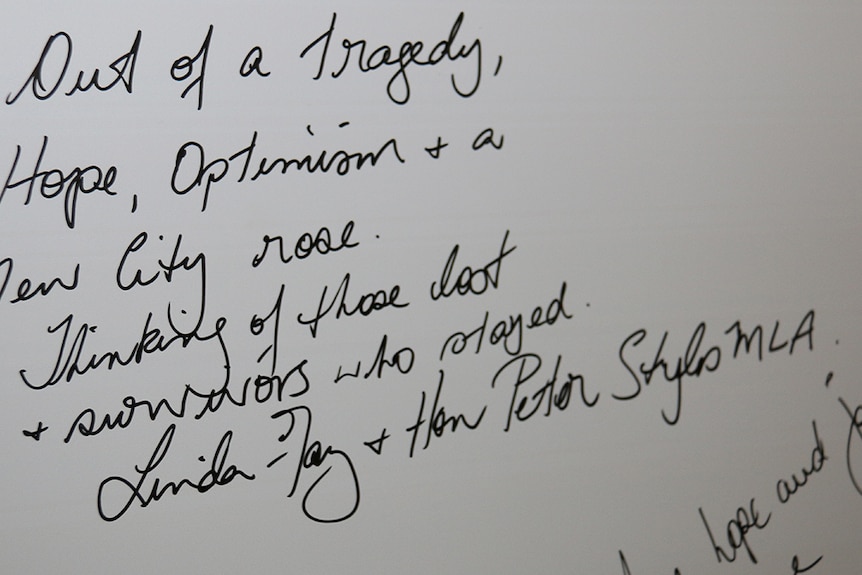 Out of a tragedy,
Hope, Optimism + a
New City rose.
Thinking of those lost
+ survivors who stayed.
Linda-Fay + Hon Peter Styles MLA.
hope and